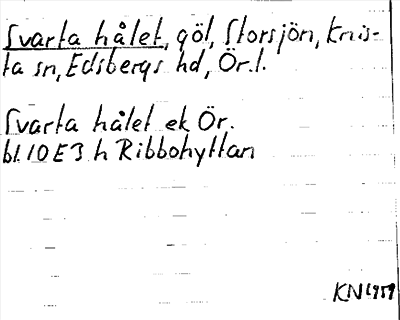 Svarta hålet, göl, Storsjön, Knis-
ta sn, Edsbergs hd, Ör.l.
Svarta hålet ek Ör.
bl. 10 E 3 h Ribbohyttan
KN 1959